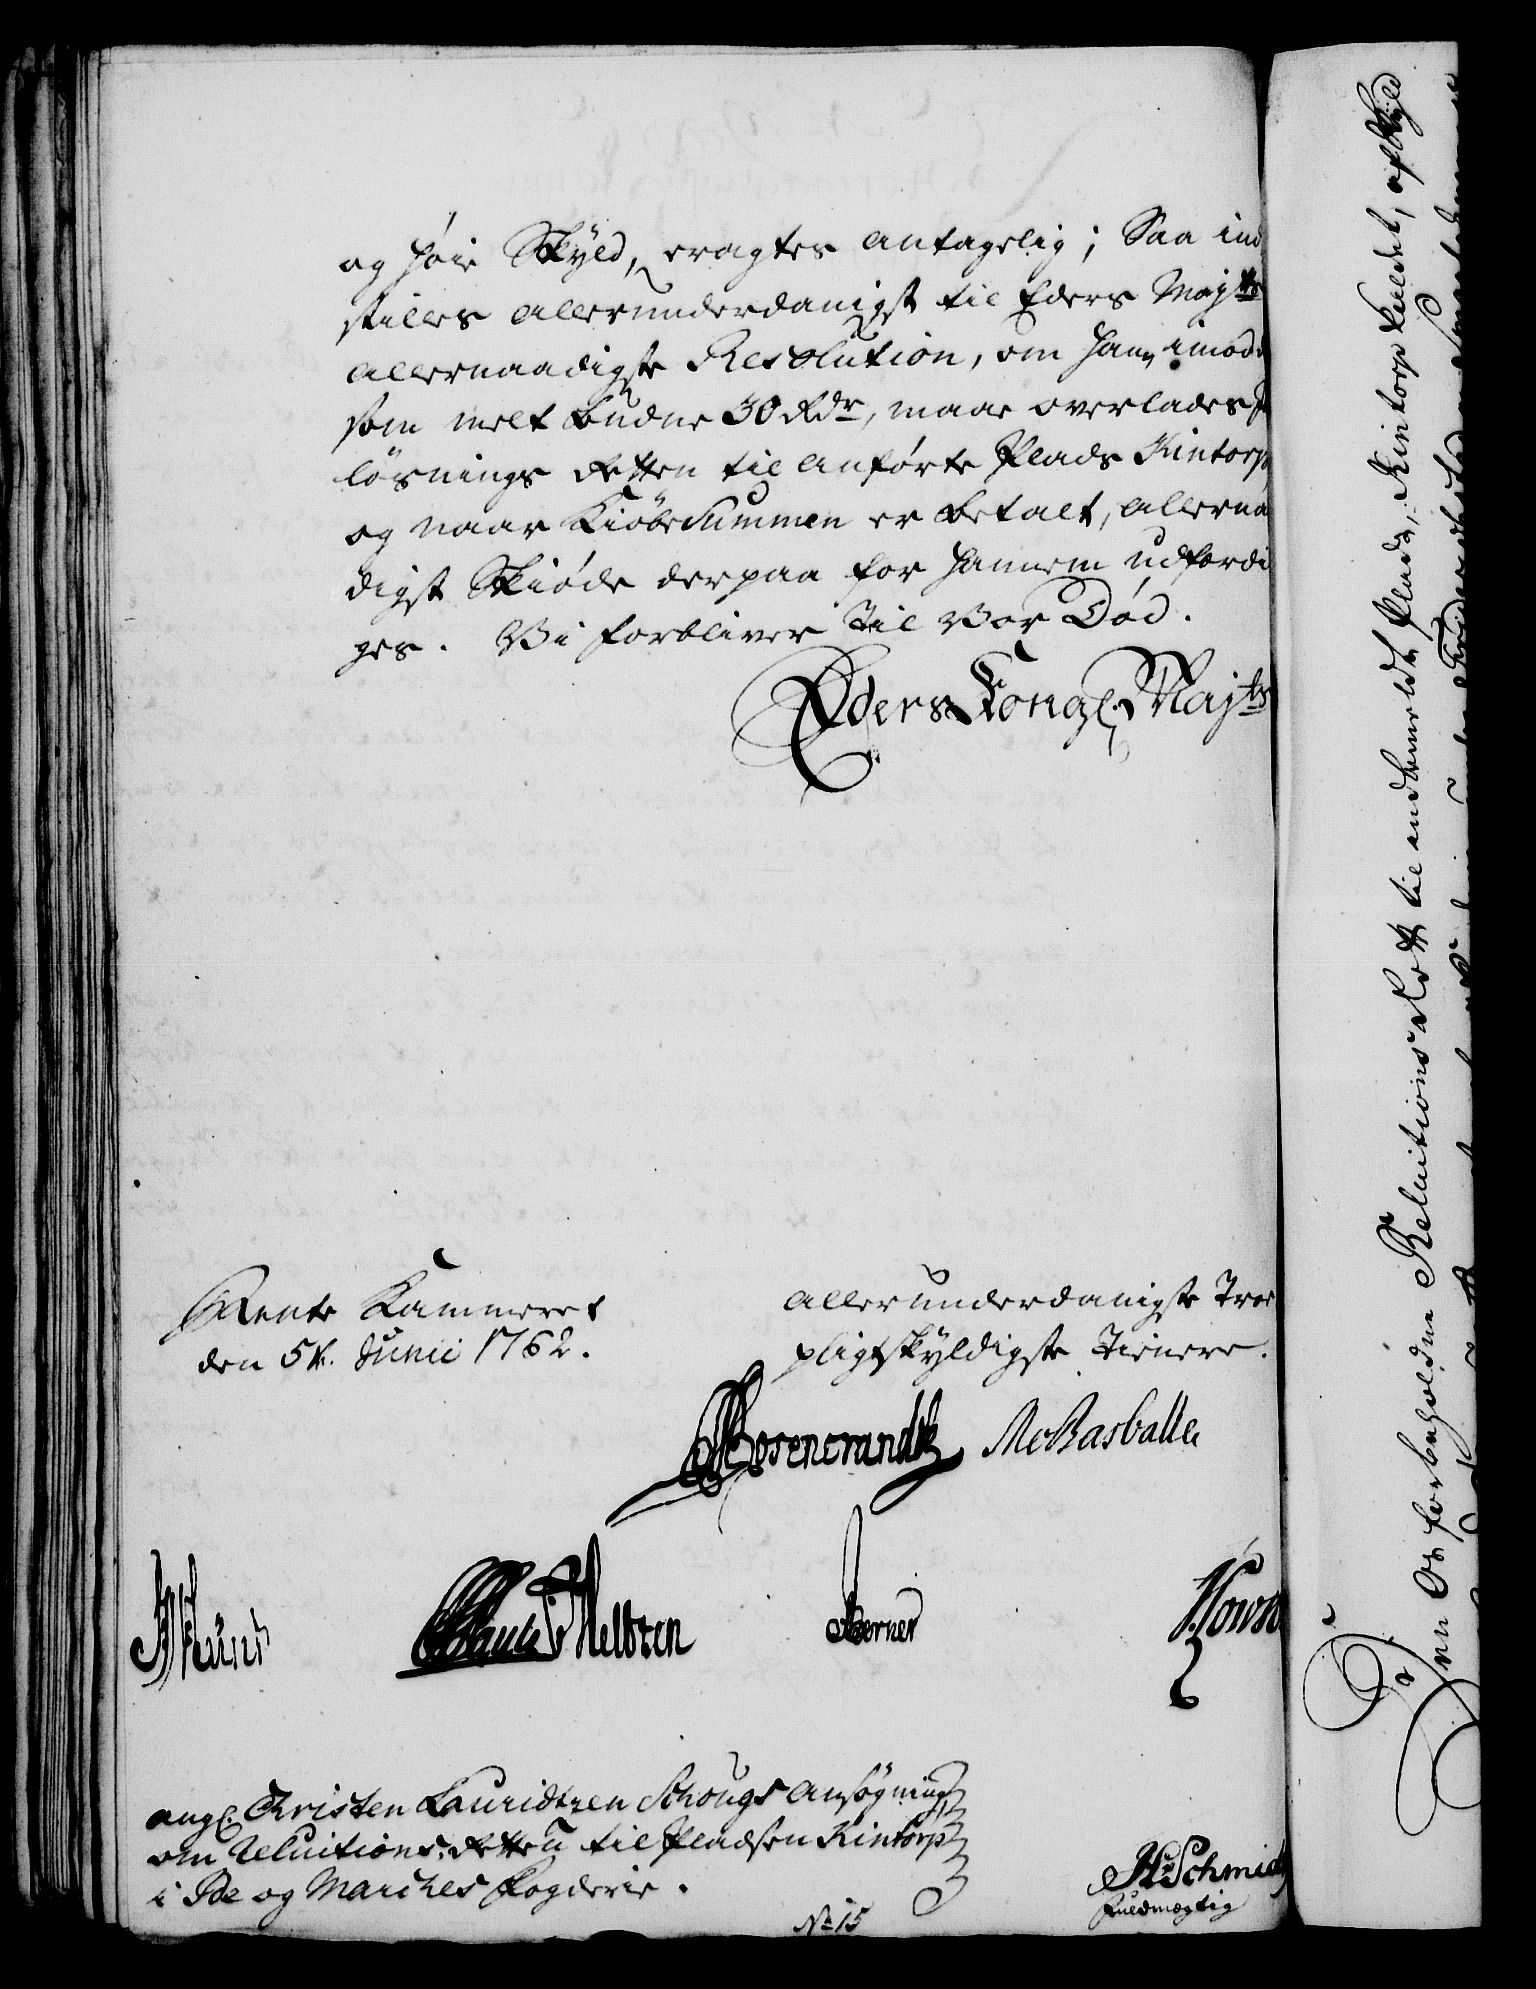 og høie Skyld, eragtes antagelig; Saa ind
stilles allerunderdanigst til Eders Majts
allernaadigste Resolution, om han, imod de
som melt budne 30 Rdr, maae overlades
løsnings Retten til anførte Plads Kintorp
og naar Kiøbesummen er betalt, allernaa
digst Skiøde derpaa for hannem udfærdi
ges. Vi forbliver til Vor Død.
Eders Kongl. Majts
Rente Kammeret
den 5t. Junii 1762.
allerunderdanigste Troe
pligtskyldigste Tienere.
Rosencrandtz
Holtzen
Kørner
ang. Christen Lauridtzen Schougs Ansøgning
om Reluitions-Retten til Pladsen Kintorp
i Ide og Marches Fogderie.
No 15
Schmidt
Fuldmægtig
Den Os forbeholdne Reluitions Rett til andbemeldte Plads, Kintorp kaldet, af Skyld